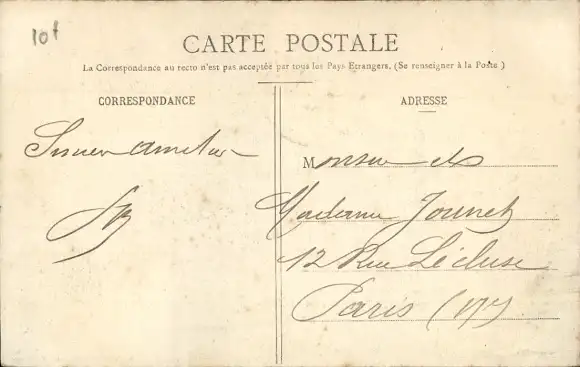 10f
CARTE POSTALE
La Correspondance au recto n'est pas acceptée par tous les Pays Etrangers, (Se renseigner à la Poste)
CORRESPONDANCE
ADRESSE
Monsieur et
Madame Jounet
12 Rue Lécluse
Paris (17)